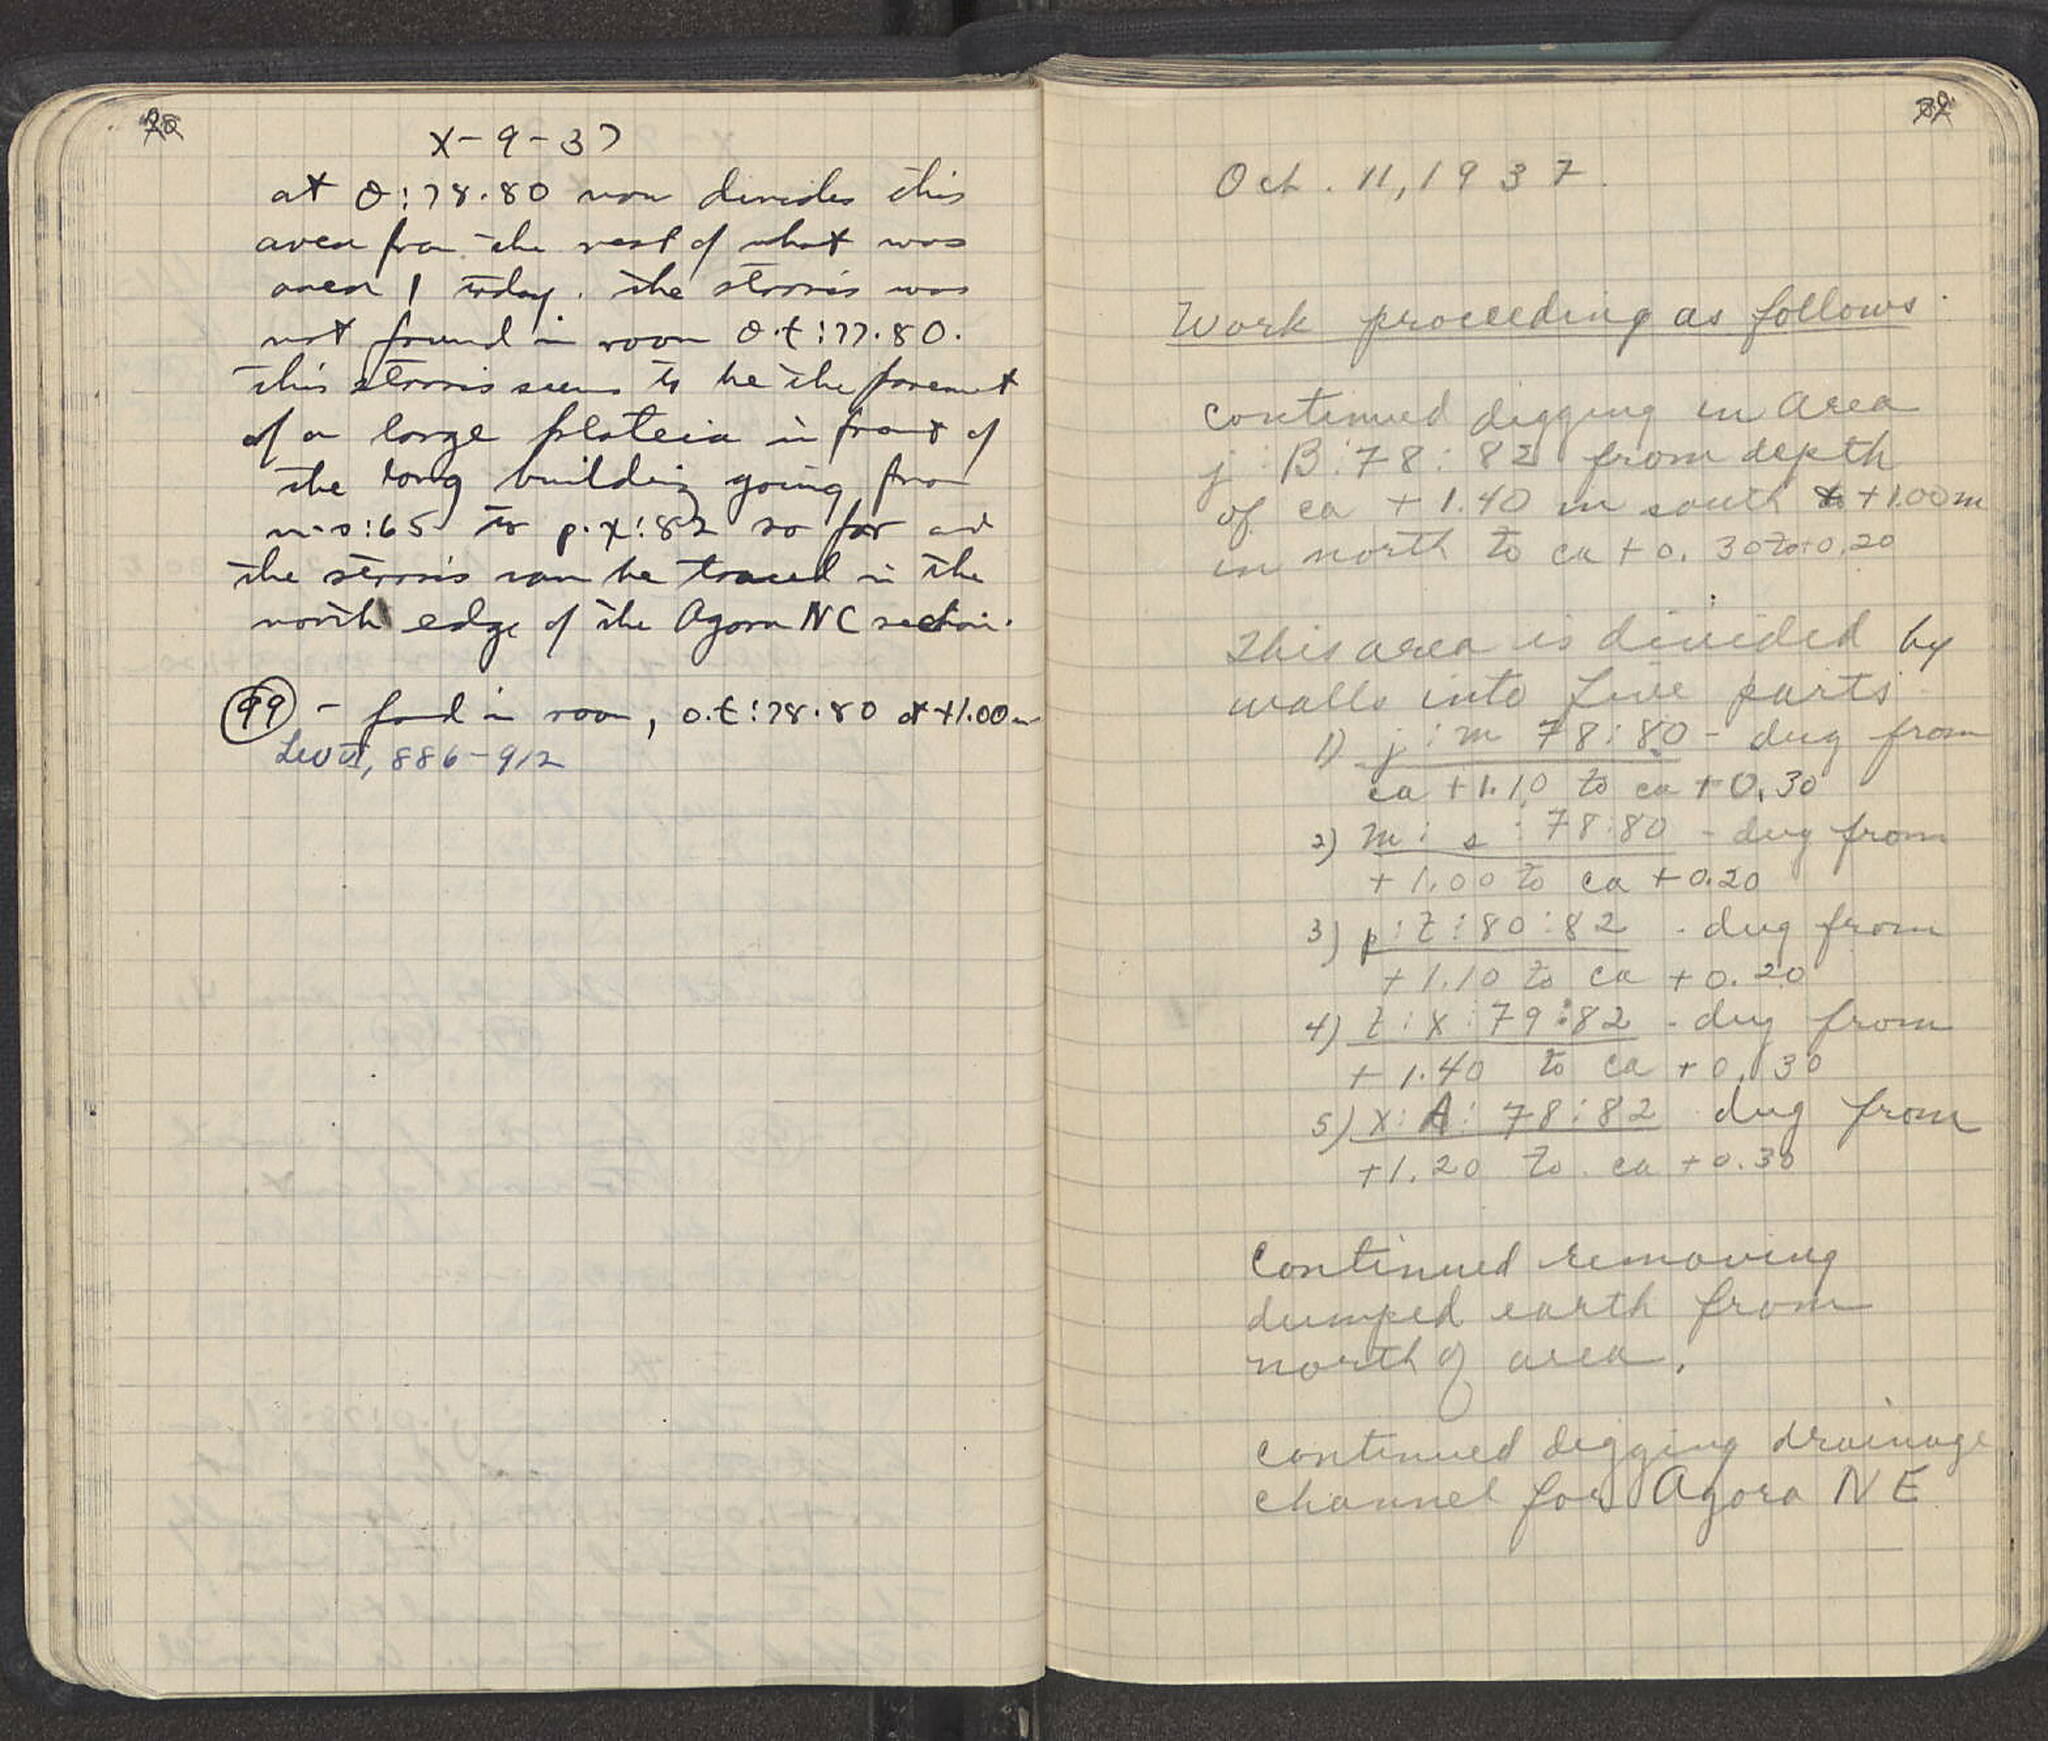 X-9-37
at O:78.80 now divides this
area from the rest of what was
area 1 today. The strosis was
not found in room O.t:77.80.
This strosis seems to be the pavement
of a large plateia in front of
the long building going from
m-s:65 to p.x:82 so far and
the strosis can be traced in the
north edge of the Agora NC section.
99 - found in room, o.t:78.80 at +1.00m
Lev VI, 886-912
Oct. 11, 1937.
Work proceeding as follows
Continued digging in area
j:B:78:82 from depth
of ca +1.40 in south to +1.00m
in north to ca +0.30 to +0.20
This area is divided by
walls into five parts
1) j:m 78:80 - dug from
ca +1.10 to ca +0.30
2) m:s:78:80 - dug from
+1.00 to ca +0.20
3) p:t:80:82 - dug from
+1.10 to ca +0.20
4) t:x:79:82 - dug from
+1.40 to ca +0.30
5) x:A:78:82 dug from
+1.20 to ca +0.30
Continued removing
dumped earth from
north of area.
Continued digging drainage
channel for Agora NE